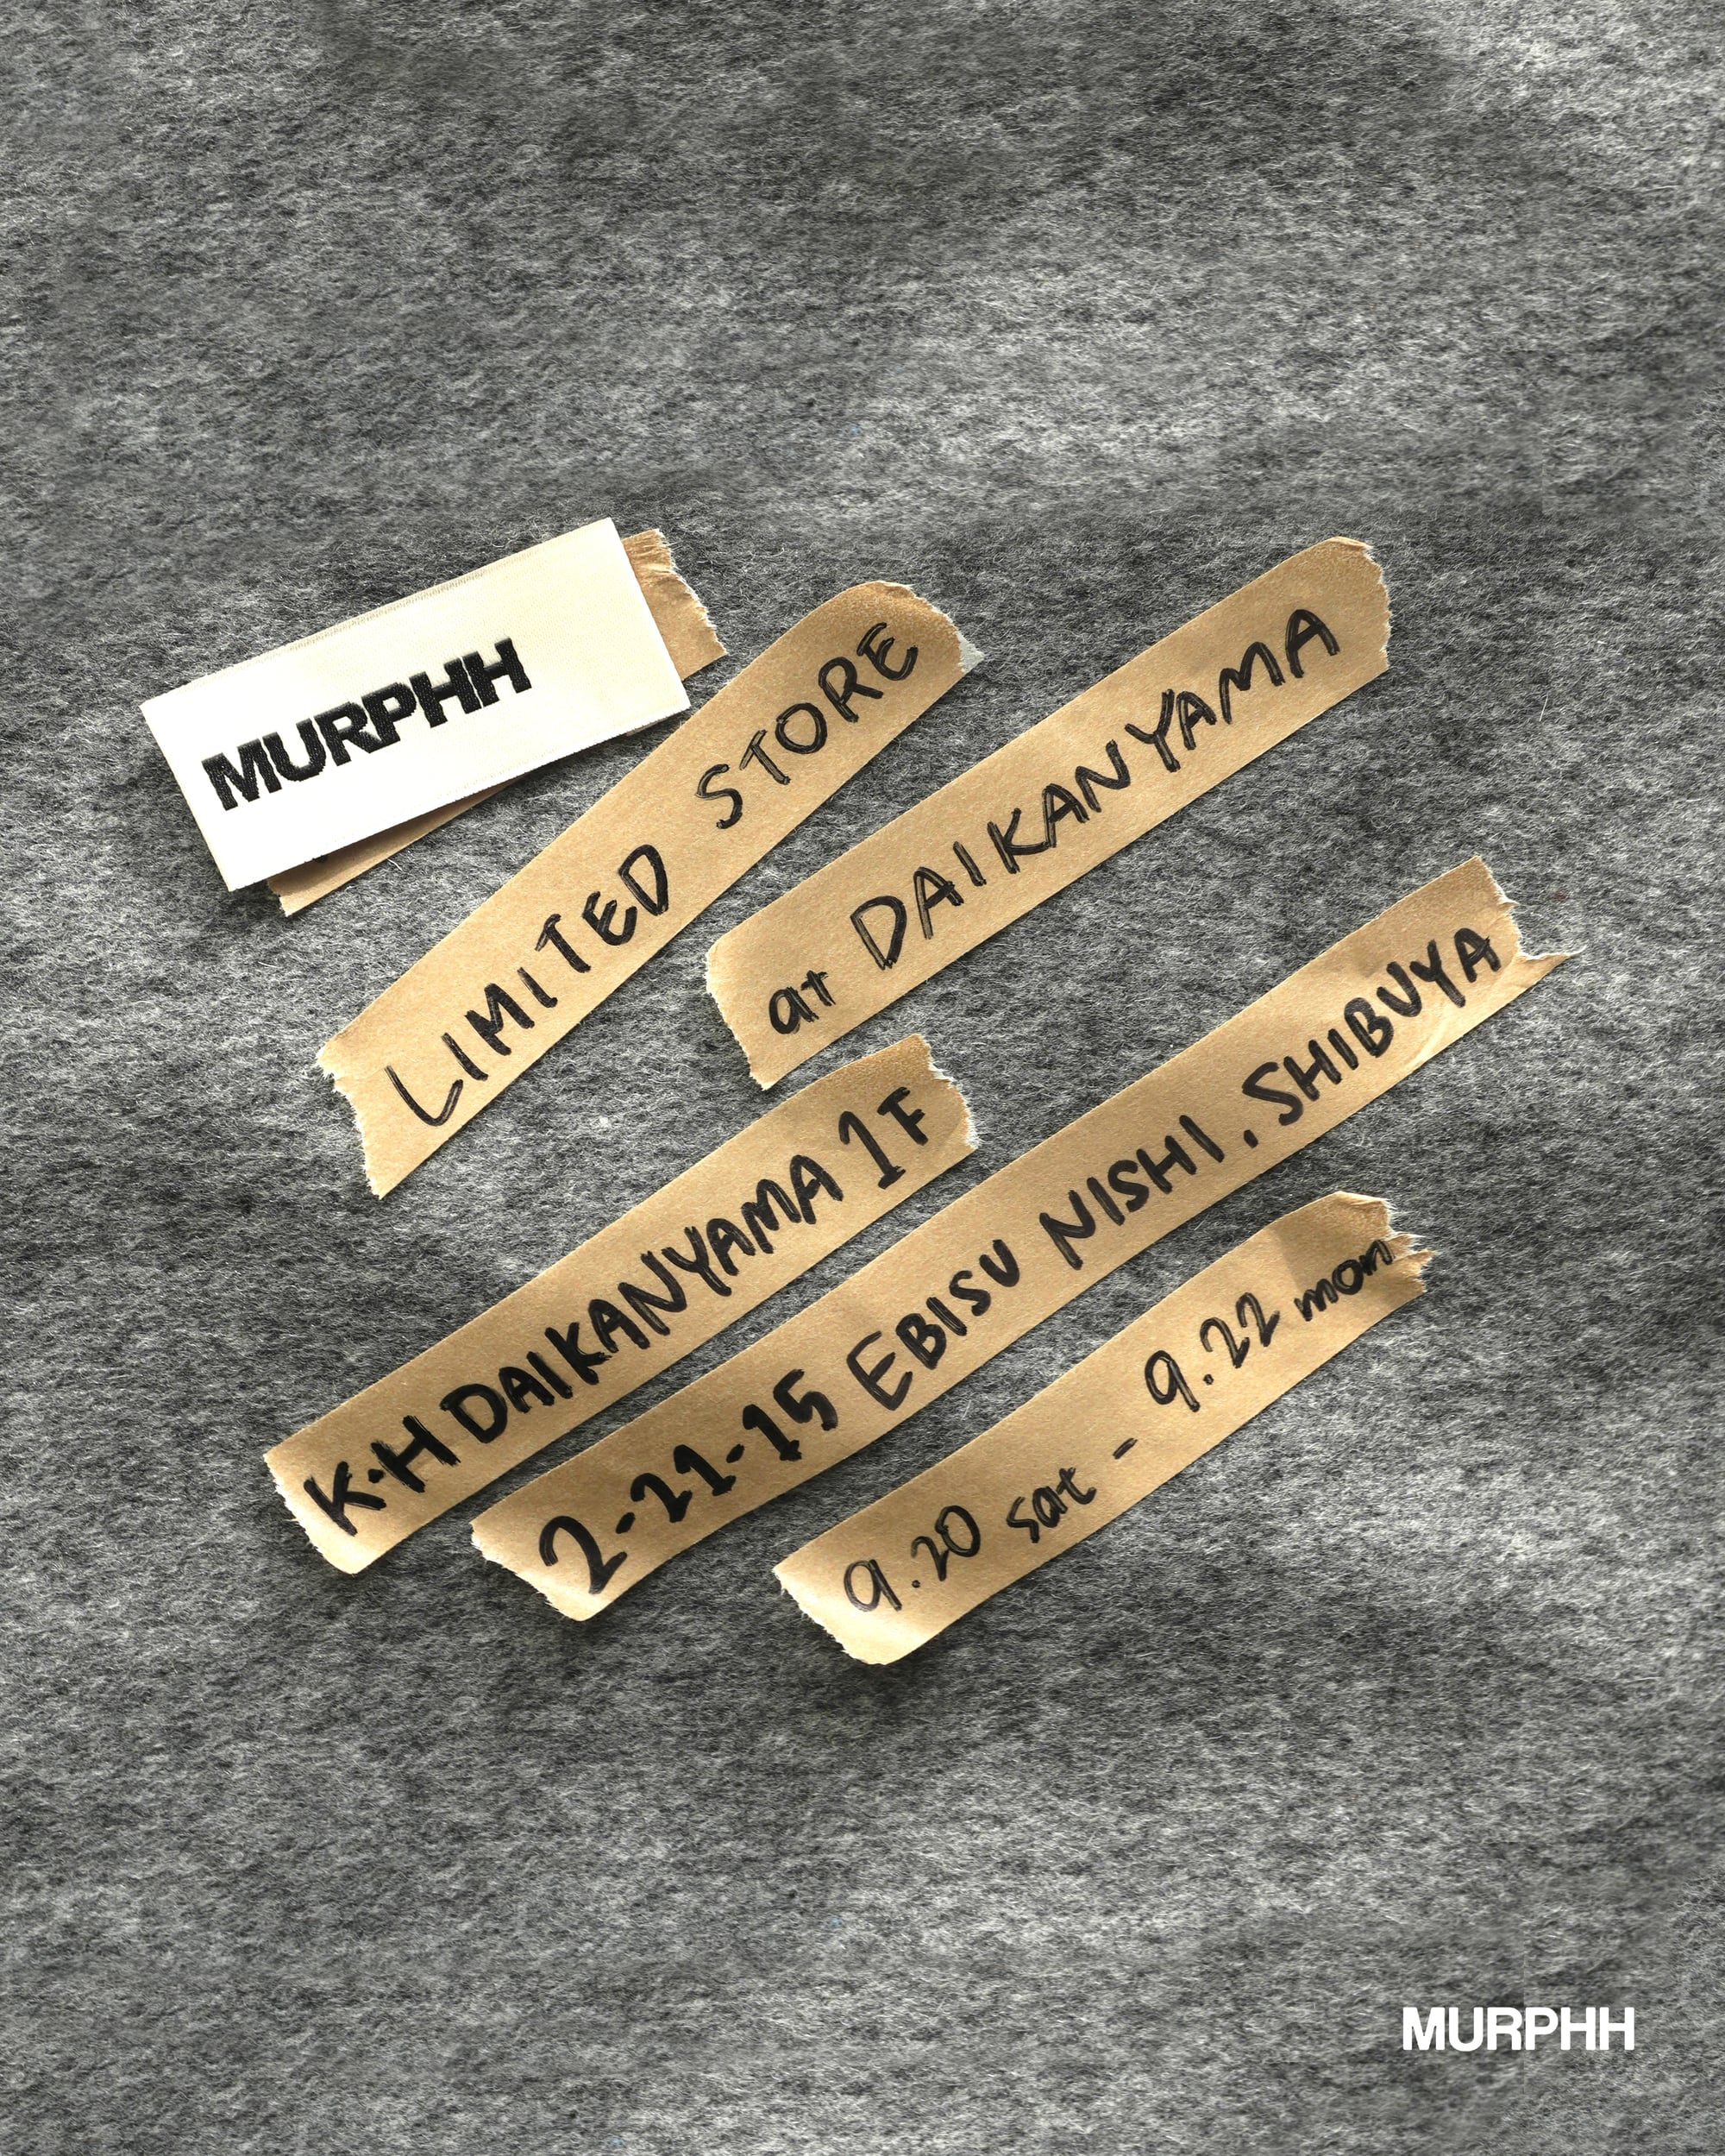 MURPHH
LIMITED STORE
at DAIKANYAMA
K·H DAIKANYAMA 1F
2-21-15 EBISU NISHI. SHIBUYA
9.20 sat - 9.22 mon
MURPHH